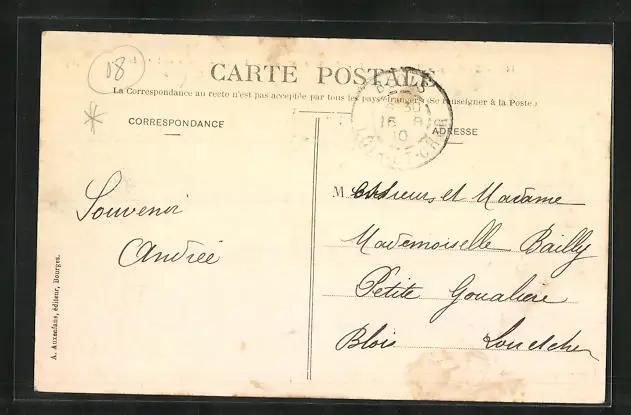 08
CARTE POSTALE
La Correspondance au recto n'est pas acceptée par tous les pays étrangers (Se renseigner à la Poste.)
CORRESPONDANCE
ADRESSE
BLOIS
16 8
10
LOIR-ET-CHER
Souvenir
Andrée
Monsieur et Madame
Mademoiselle Bailly
Petite
Blois Loir et Cher
A. Auxenfans, éditeur, Bourges.